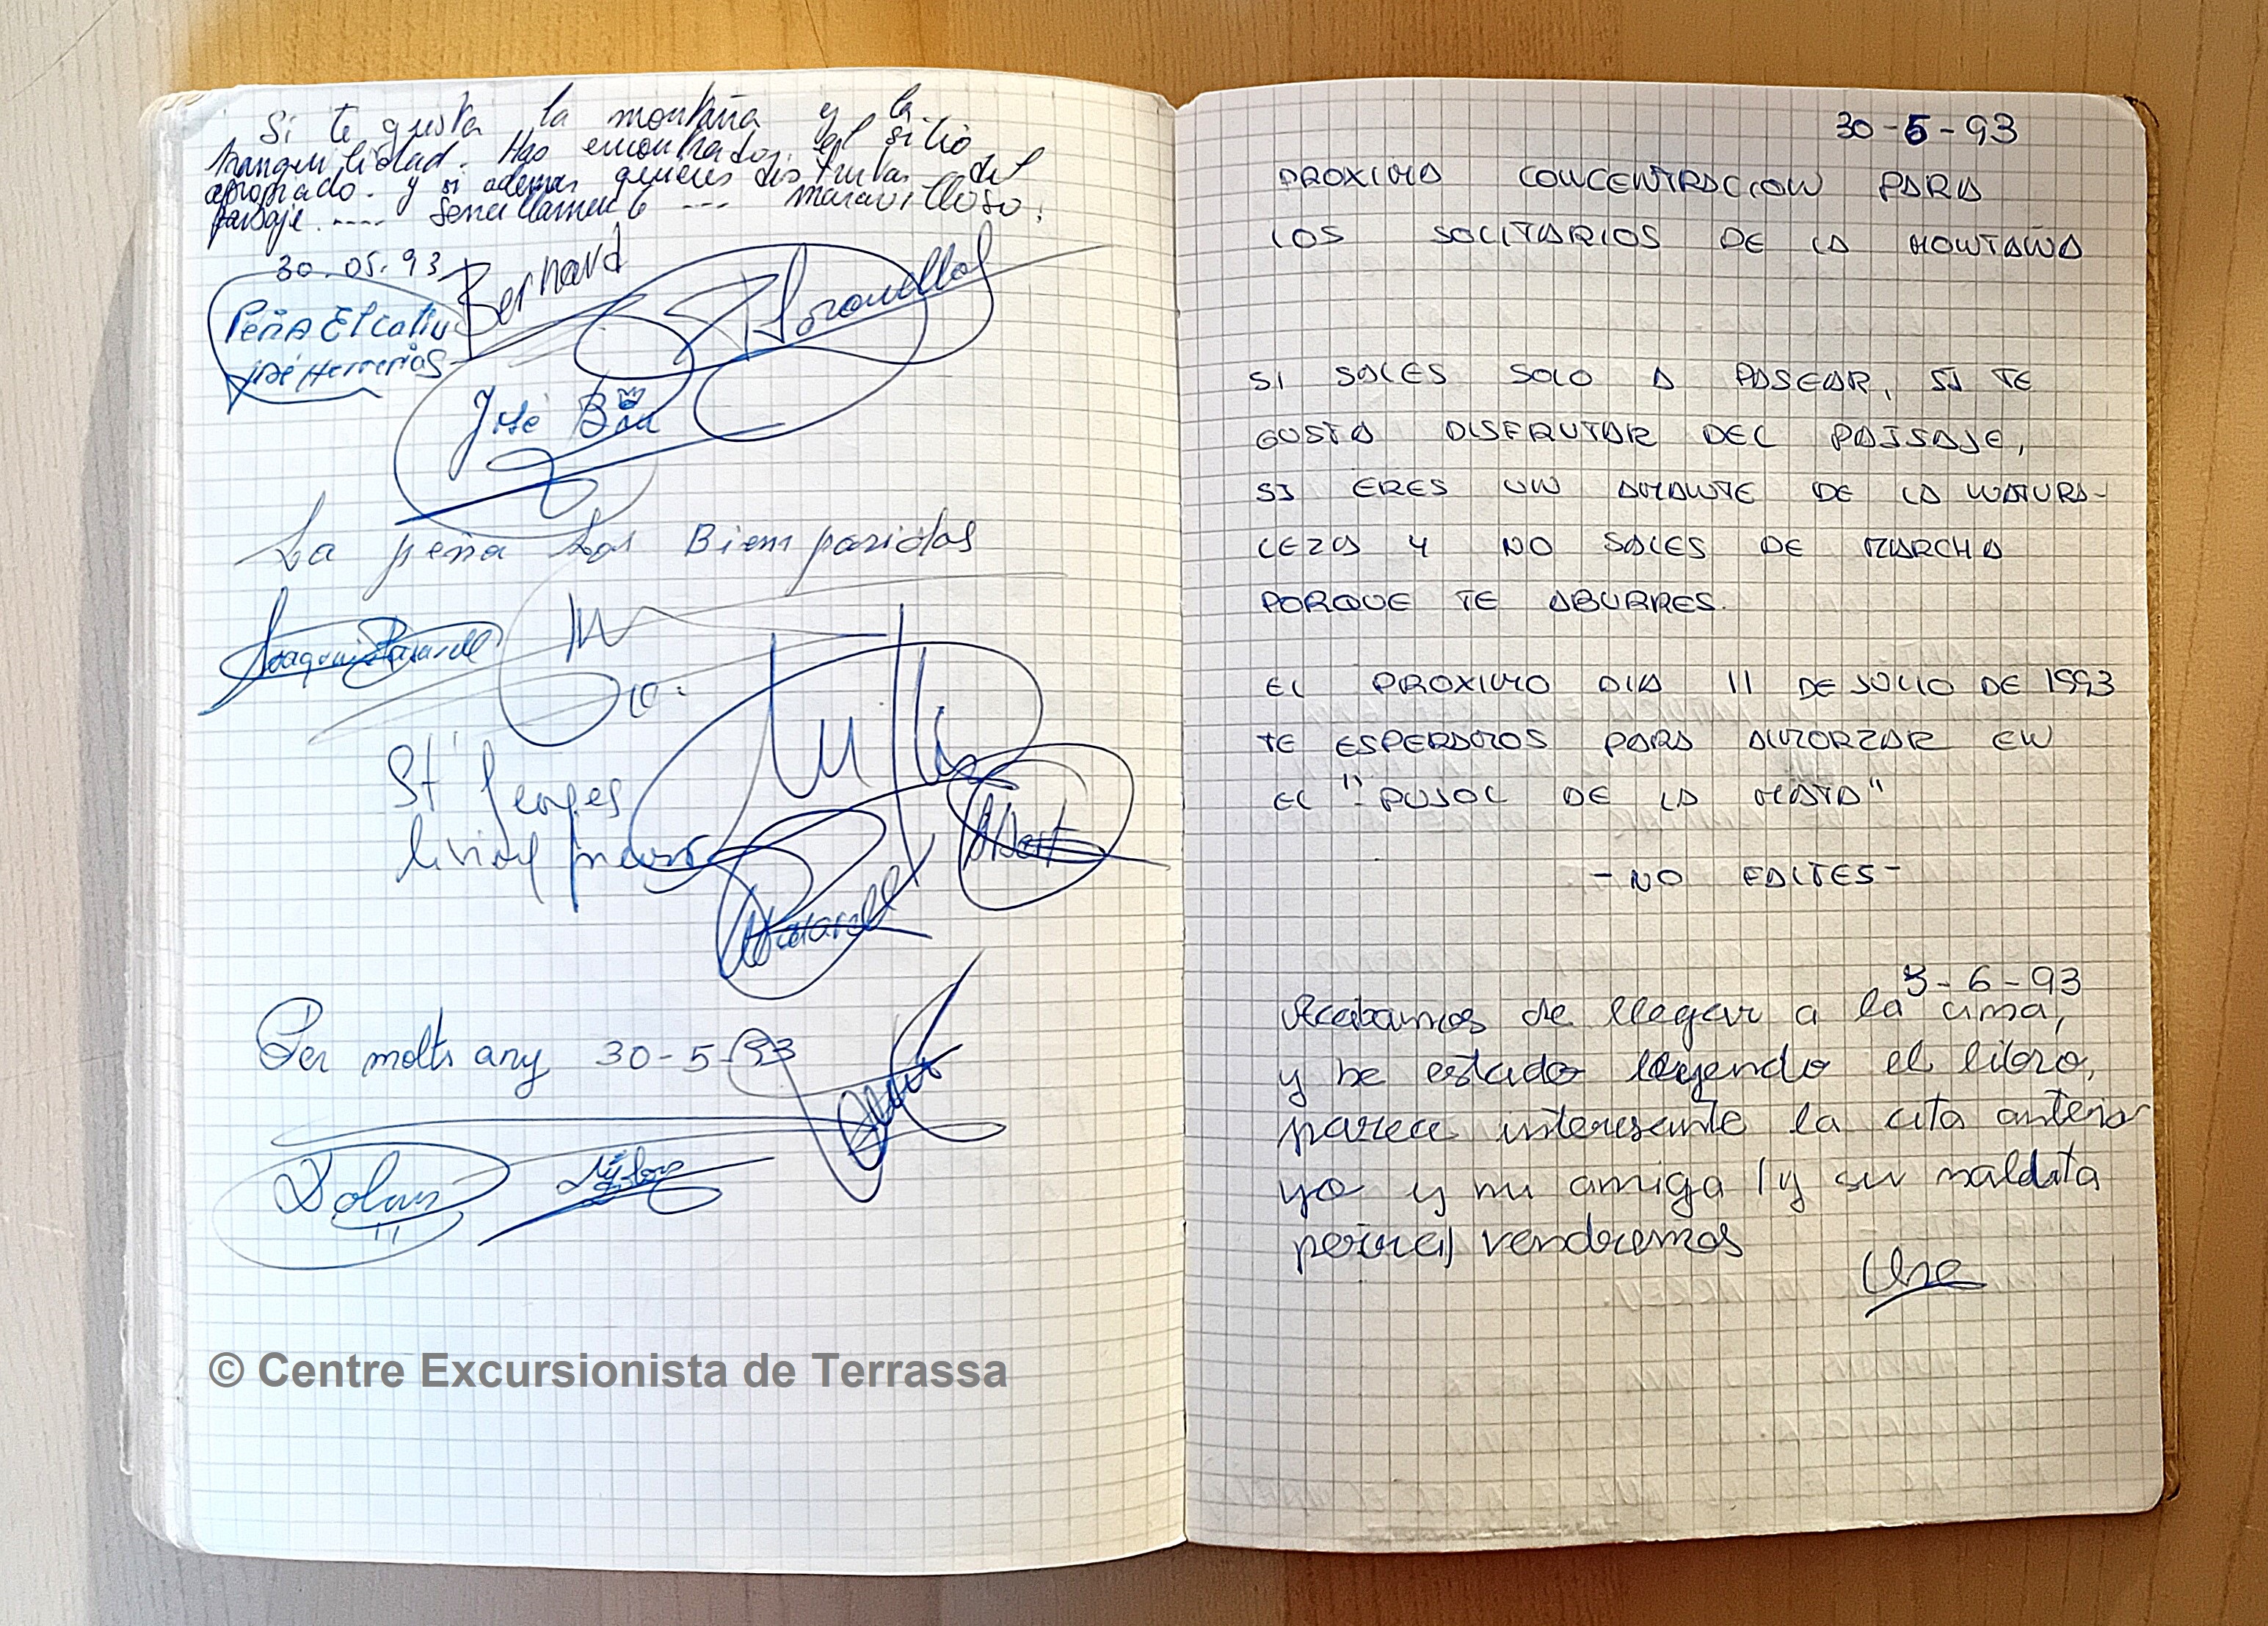 Si te gusta la montaña y la
tranquilidad. Has encontrado el sitio
apropiado. y si ademas quieres disfrutar del
paisaje..... Sencillamente --- maravilloso.
30.05.93
Bernard
Peña El Caliu
José Herrerias
José
La peña Los Bien paridos
Joaquin
St Georges
living
Albert
Per molts any 30-5-93
30-5-93
PROXIMA CONCENTRACION PARA
LOS SOLITARIOS DE LA MONTAÑA
SI SALES SOLO A PASEAR, SI TE
GUSTA DISFRUTAR DEL PAISAJE,
SI ERES UN AMANTE DE LA NATURA-
LEZA Y NO SALES DE MARCHA
PORQUE TE ABURRES.
EL PROXIMO DIA 11 DE JULIO DE 1993
TE ESPERAMOS PARA ALMORZAR EN
EL "PUJOL DE LA MATA"
-NO FALTES-
3-6-93
Acabamos de llegar a la cima,
y he estado leyendo el libro,
parece interesante la cita anterior
yo y mi amiga (y su maldita
perra) vendremos
© Centre Excursionista de Terrassa